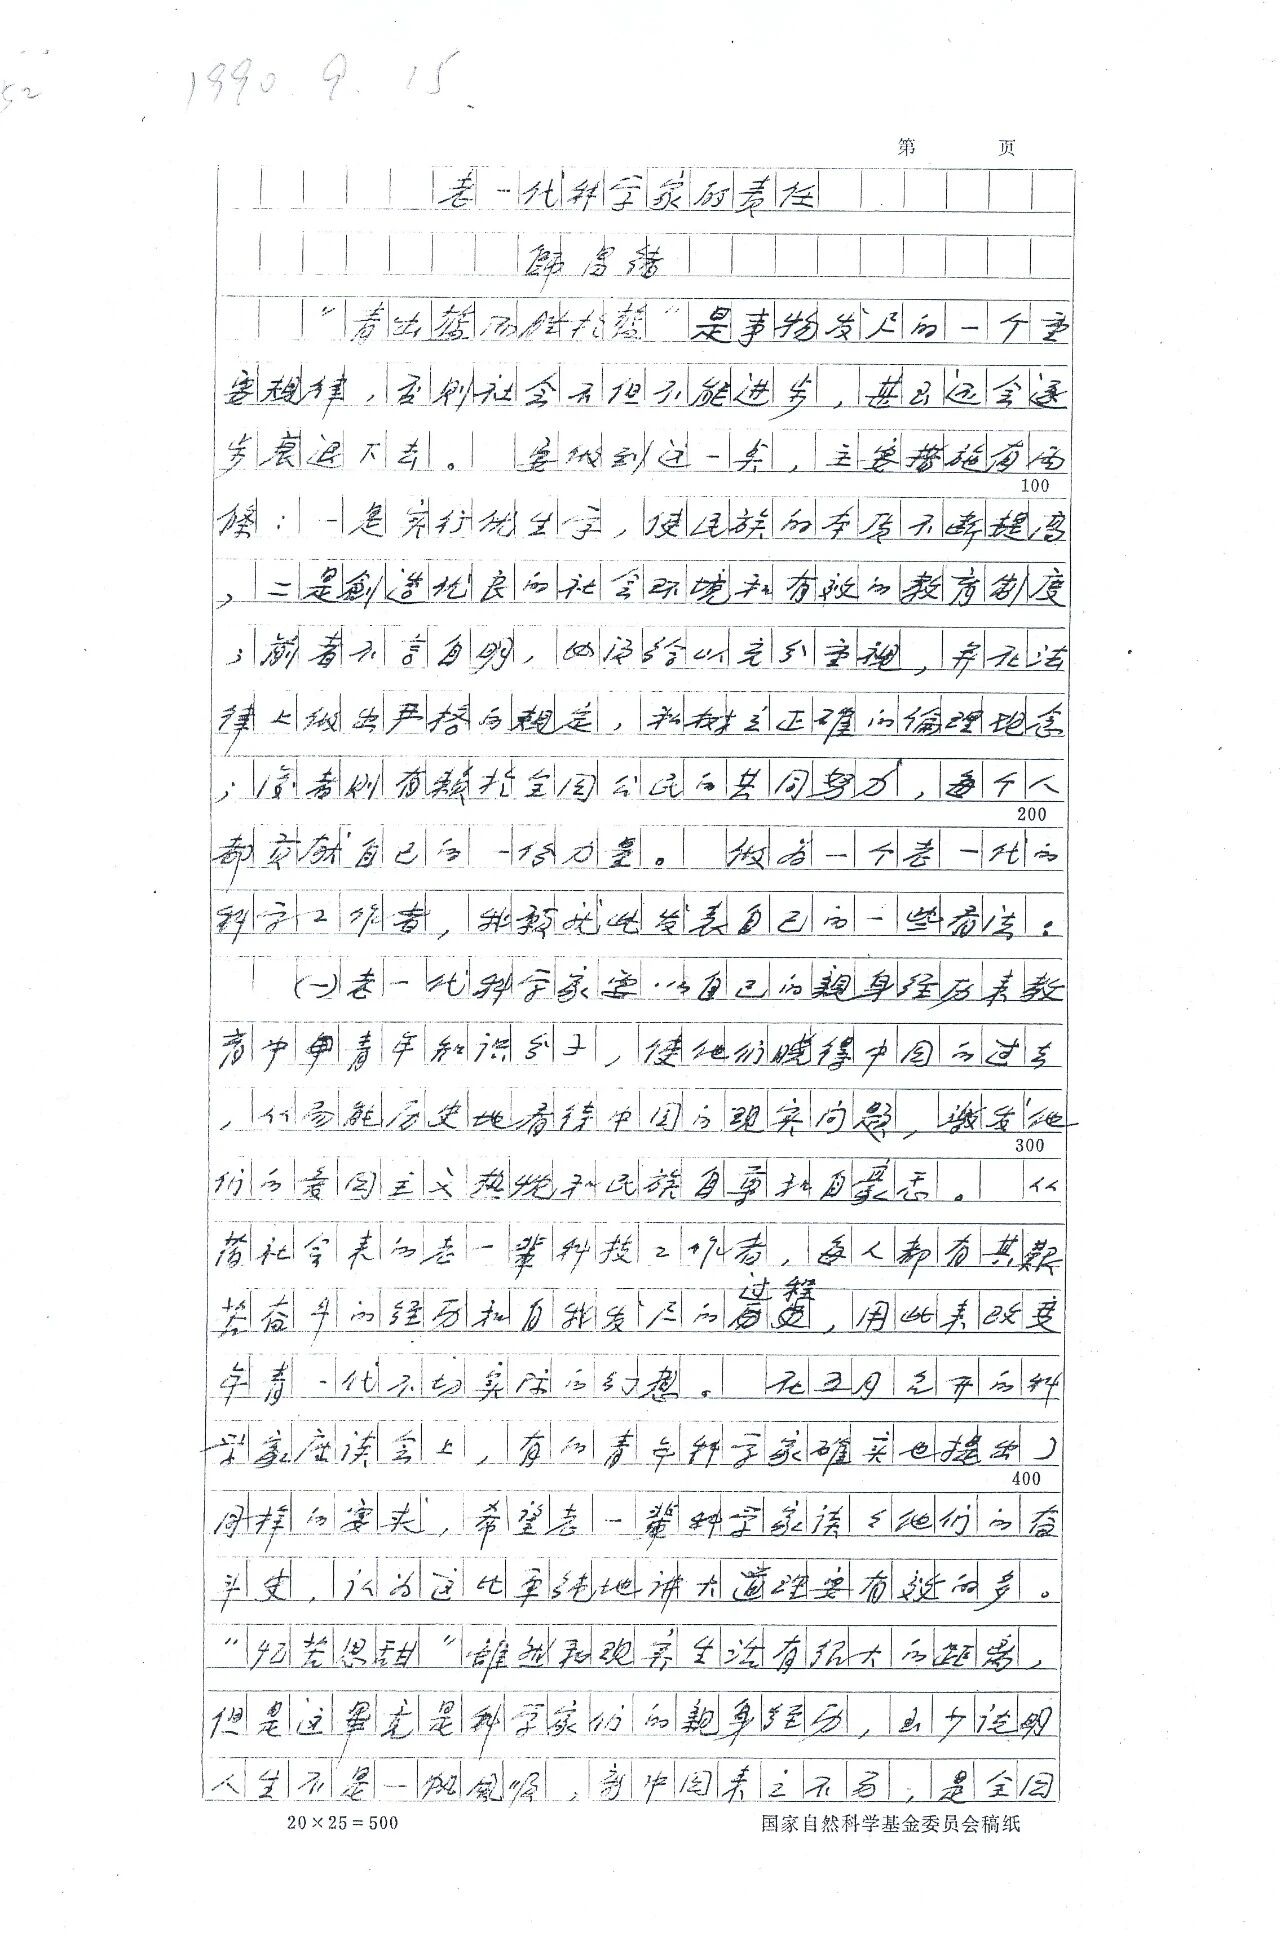 52
1990.9.15
第 页
老一代科学家的责任
师昌绪
“青出蓝而胜于蓝”是事物发展的一个重
要规律，否则社会不但不能进步，甚至还会逐
步衰退下去。 要做到这一点，主要措施有两
条：一是实行优生学，使民族的本质不断提高
，二是創造优良的社会环境和有效的教育制度
；前者不言自明，必须给以充分重视，并在法
律上做出严格的规定，和树立正確的倫理观念
；後者则有赖於全国公民的共同努力，每个人
都贡献自己的一份力量。 做为一个老一代的
科学工作者，我願就此发表自己的一些看法。
(一)老一代科学家要以自己的親身经历来教
育中青年知识分子，使他们晓得中国的过去
，从而能历史地看待中国的现实问题，激发他
们的爱国主义热忱和民族自尊和自豪感。 从
旧社会来的老一辈科技工作者，每人都有其艰
过程
苦奋斗的经历和自我发展的历史，用此来改变
年青一代不切实际的幻想。 在五月召开的科
学家座谈会上，有的青年科学家確实也提出了
同样的要求，希望老一辈科学家谈谈他们的奋
斗史，认为这比单纯地讲大道理要有效的多。
“忆苦思甜”雖然和现实生活有很大的距离，
但是这畢竟是科学家们的親身经历，至少说明
人生不是一帆风顺，新中国来之不易，是全国
100
200
300
400
20×25=500
国家自然科学基金委员会稿纸